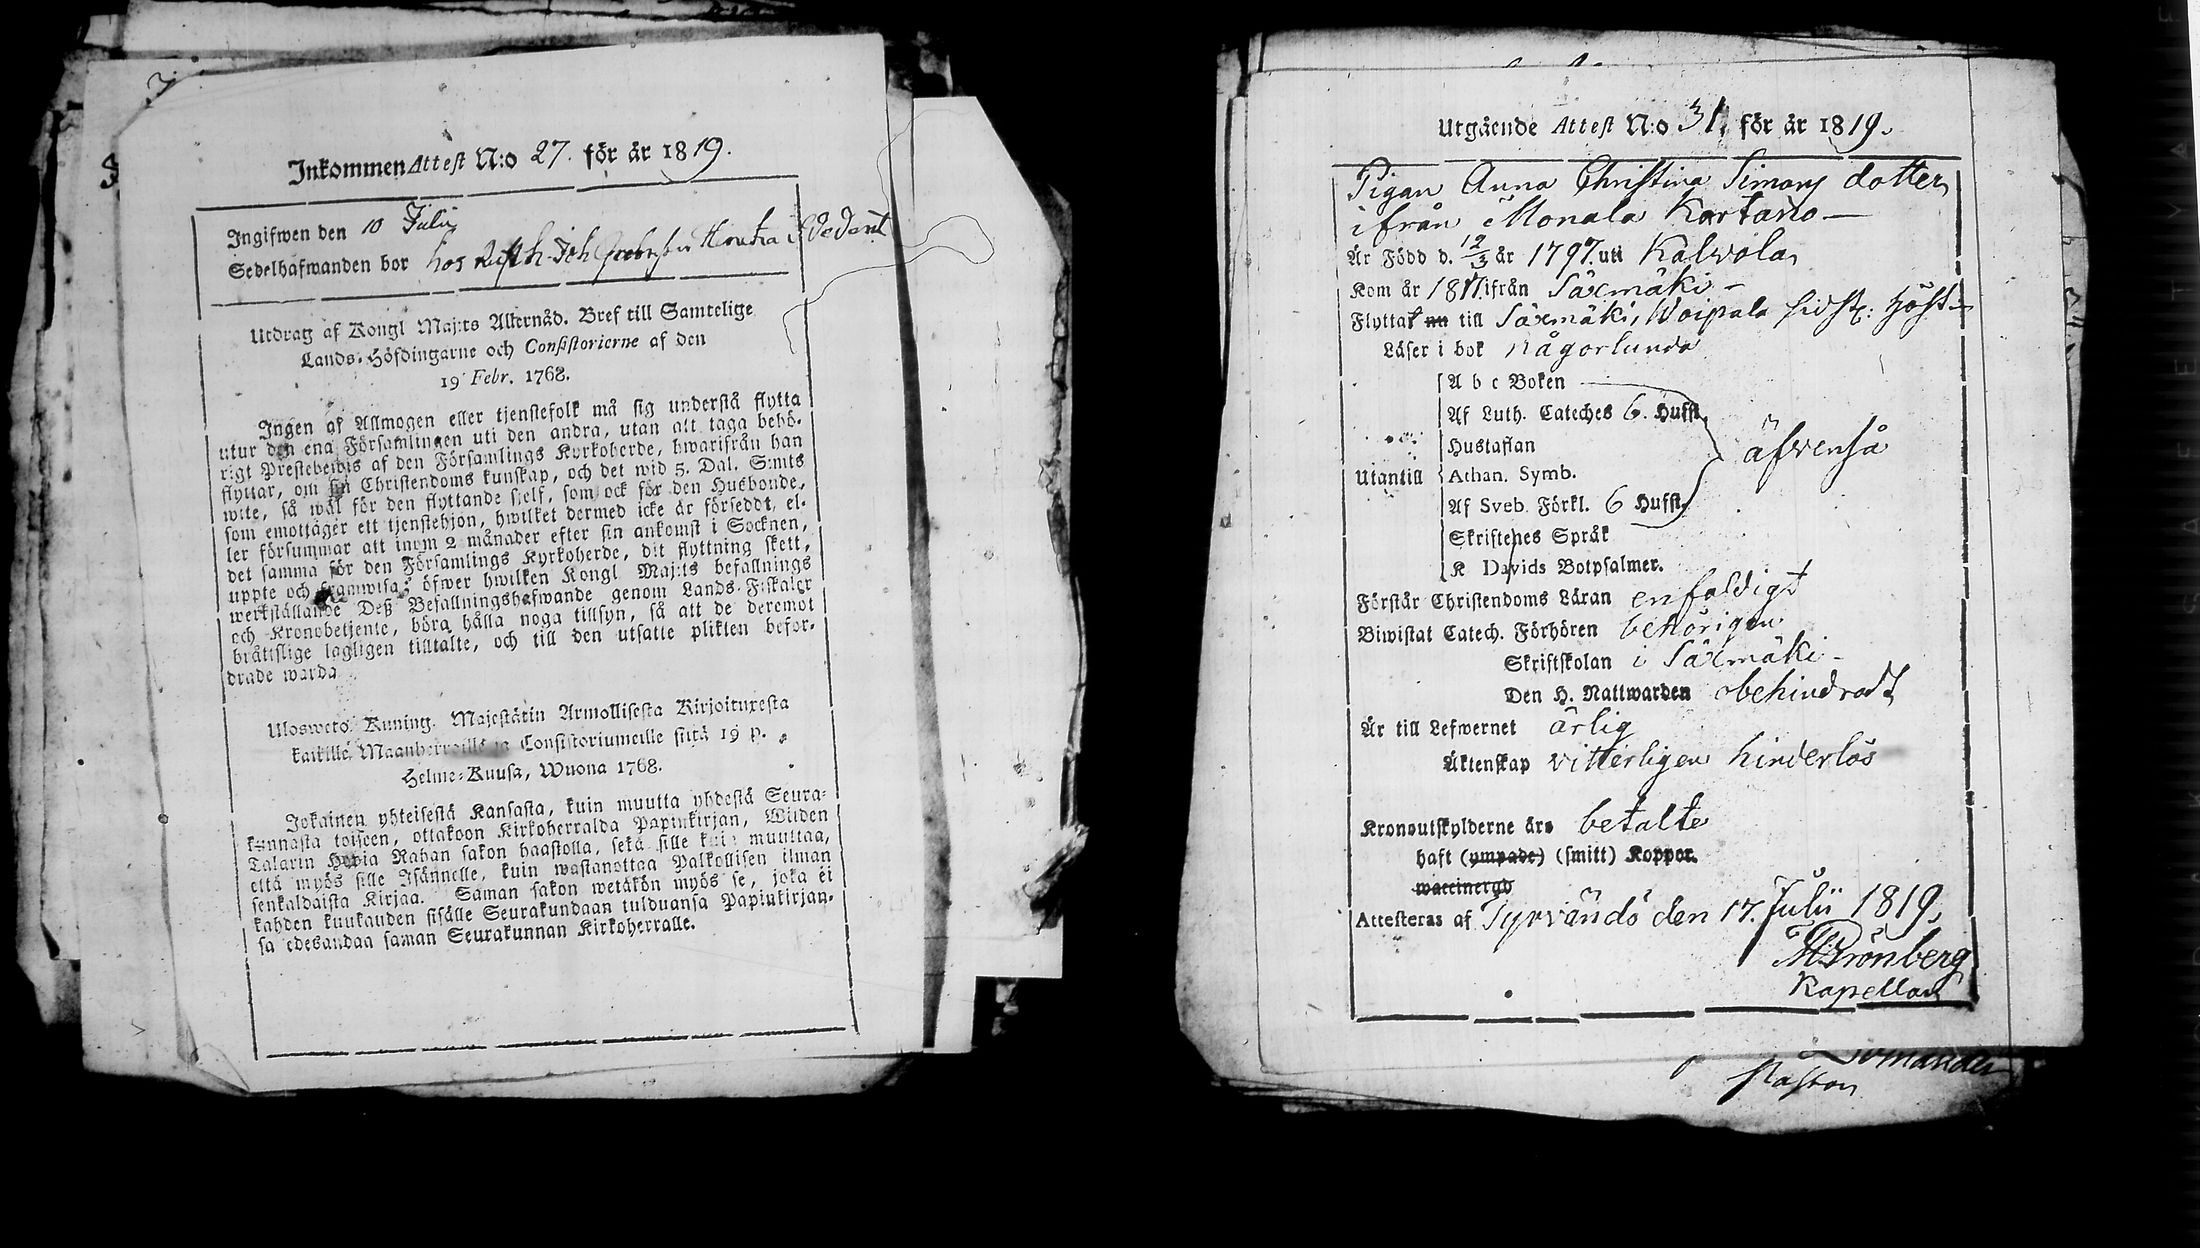 Inkommen Attest N:o 27. för år 1819.
Ingifwen den 10 Julii
Sedelhafwanden bor hos
Utdrag af Kongl Maj:ts Allernåd. Bref till Samtelige
Lands-Höfdingarne och Consistorierne af den
19 Febr. 1768.
Ingen af Allmogen eller tjenstefolk må sig understå flytta
utur den ena Församlingen uti den andra, utan att taga behö-
rigt Prestebewis af den Församlings Kyrkoherde, hwarifrån han
flyttar, om sin Christendoms kunskap, och det wid 5. Dal. S:mts
wite, så wäl för den flyttande sielf, som ock för den Husbonde,
som emottager ett tjenstehjon, hwilket dermed icke är försedt, el-
ler försummar att inom 2 månader efter sin ankomst i Socknen,
det samma för den Församlings Kyrkoherde, dit flyttning skett,
uppte och framwisa; öfwer hwilken Kongl Maj:ts befallnings
werkställande Deß Befallningshafwande genom Lands-Fiskaler
och Kronobetjente, böra hålla noga tillsyn, så att de deremot
bråttslige lagligen tilltalte, och till den utsatte plikten befor-
drade warda
Ulosweto Kuning. Majestätin Armollisesta Kirjoituxesta
kaikille Maanherroille ja Consistoriumeille siitä 19 p.
Helme-Kuusa, Wuona 1768.
Jokainen yhteisestä Kansasta, kuin muutta yhdestä Seura-
kunnasta toiseen, ottakoon Kirkoherralda Papinkirjan, Wiiden
Talarin Hopia Rahan sakon haastolla, sekä sille kuin muuttaa,
että myös sille Isännelle, kuin wastanottaa Palkollisen ilman
senkaldaista Kirjaa. Saman sakon wetäkön myös se, joka ei
kahden kuukauden sisälle Seurakundaan tulduansa Papinkirjan-
sa edesandaa saman Seurakunnan Kirkoherralle.
Utgående Attest N:o 31. för år 1819.
Pigan Anna Christina Simons dotter
ifrån Monala Kartano
Är Född d. 12/3 år 1797. uti Kalvola
Kom år 1817. ifrån Säxmäki
Flyttat nu till Säxmäki, Woipala sidstl. höst
Läser i bok någorlunda
A b c Boken
Af Luth. Cateches 6. Hufst.
Hustaflan
äfvenså
Utantill Athan. Symb.
Af Sveb. Förkl. 6 Hufst.
Skriftenes Språk
K Davids Botpsalmer.
Förstår Christendoms Läran enfaldigt
Biwistat Catech. Förhören behörigen
Skriftskolan i Säxmäki
Den H. Nattwarden obehindradt
Är till Lefwernet ärlig
Äktenskap vitterligen hinderlös
Kronoutskylderne äro betalte
haft (ympade) (smitt) Koppor.
waccinerad
Attesteras af Tyrvändö den 17. Julii 1819.
Grönberg
Kapellan
Pastor